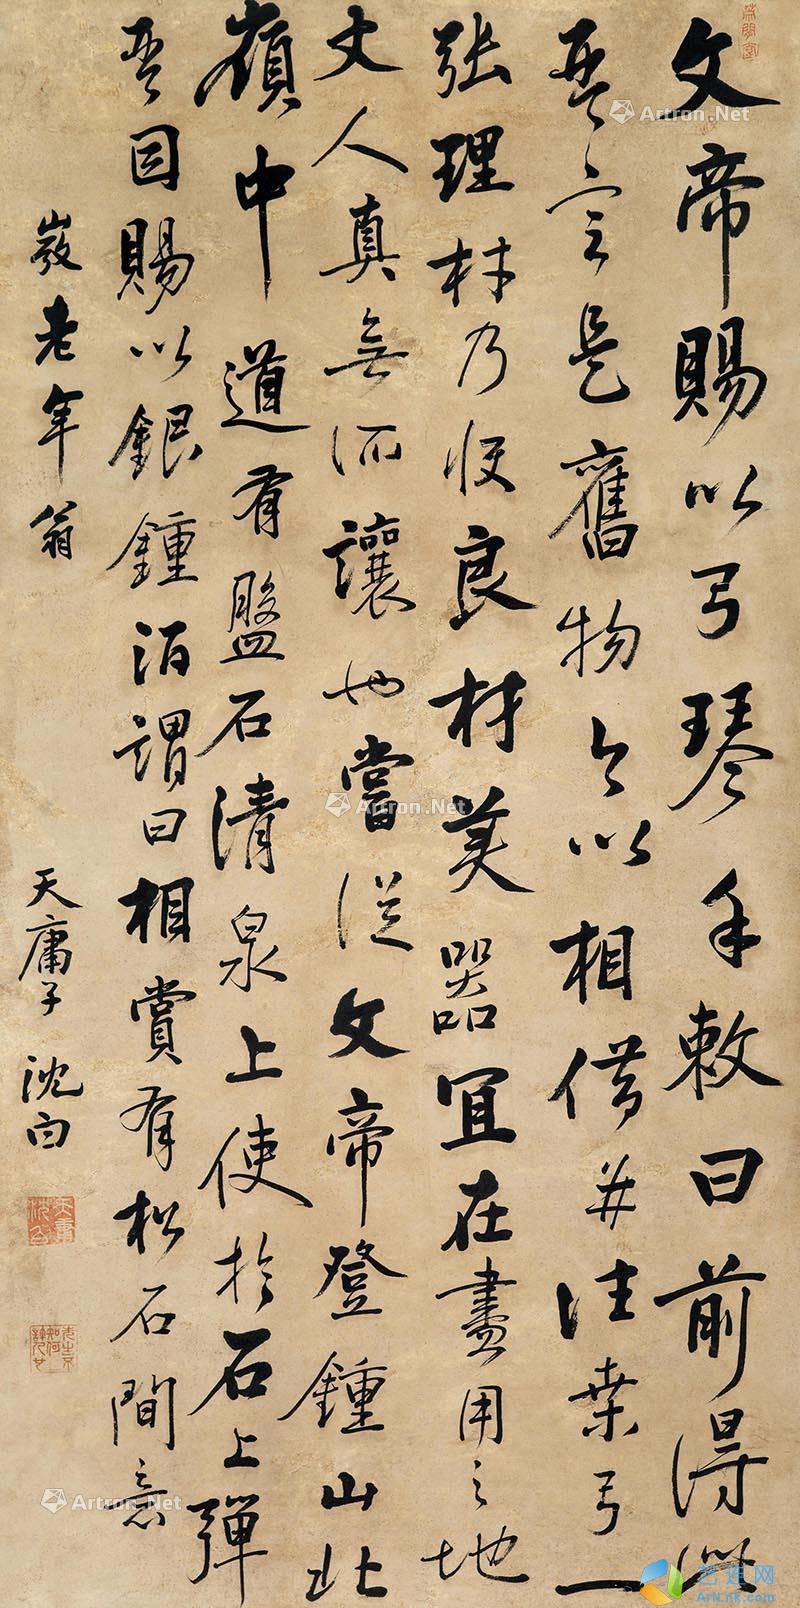 文帝賜以弓琴手敕曰前得從
吾言是舊物今以相借并往桑弓一
張理材乃快良材美器宜在盡用之地
丈人真無所讓也嘗從文帝登鍾山北
嶺中道有盤石清泉上使於石上彈
琴因賜以銀鍾酒謂曰相賞有松石間意
嚴老年翁
天庸子沈白
Artron.Net
Artron.Net
Artron.Net
Artron.Net
艺连网
ArtLN.com